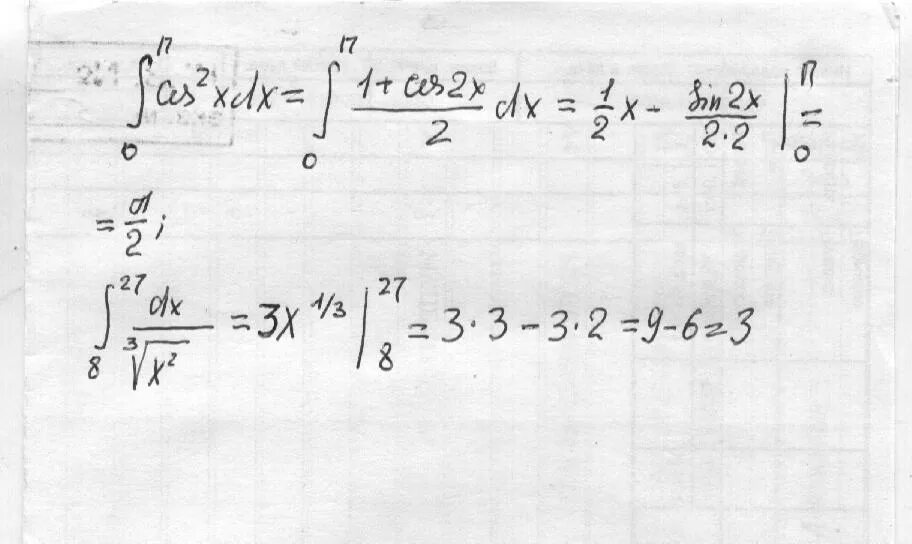 ∫₀^π cos²xdx = ∫₀^π (1+cos2x)/2 dx = 1/2 x - sin2x/(2·2) |₀^π =
= π/2;
∫₈²⁷ dx/∛(x²) = 3x^(1/3) |₈²⁷ = 3·3 - 3·2 = 9-6=3